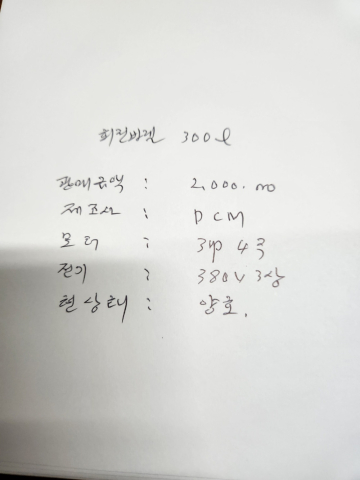 회전바렐 300ℓ
판매금액 : 2,000.000
제조사 : DCM
모터 : 3HP 4극
전기 : 380V 3상
현상태 : 양호.